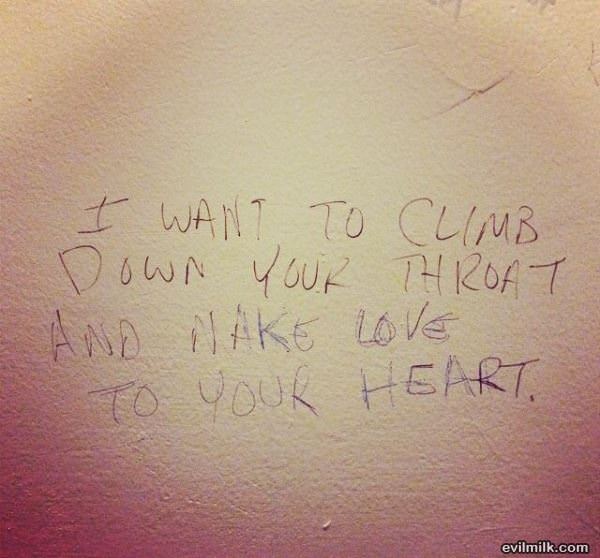 I WANT TO CLIMB
DOWN YOUR THROAT
AND MAKE LOVE
TO YOUR HEART.
evilmilk.com